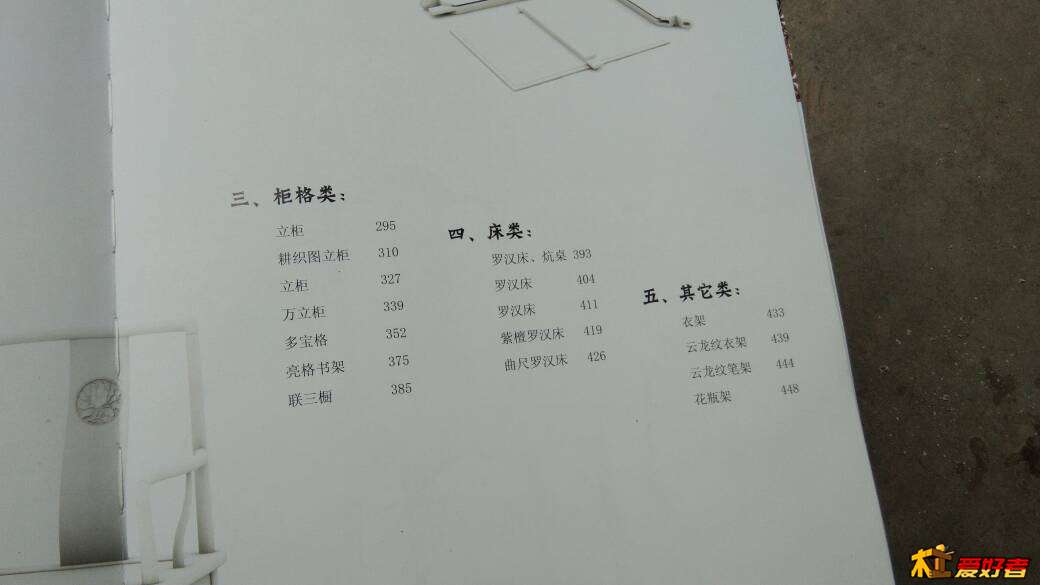 三、柜格类：
立柜 295
耕织图立柜 310
立柜 327
万立柜 339
多宝格 352
亮格书架 375
联三橱 385
四、床类：
罗汉床、炕桌 393
罗汉床 404
罗汉床 411
紫檀罗汉床 419
曲尺罗汉床 426
五、其它类：
衣架 433
云龙纹衣架 439
云龙纹笔架 444
花瓶架 448
木工爱好者